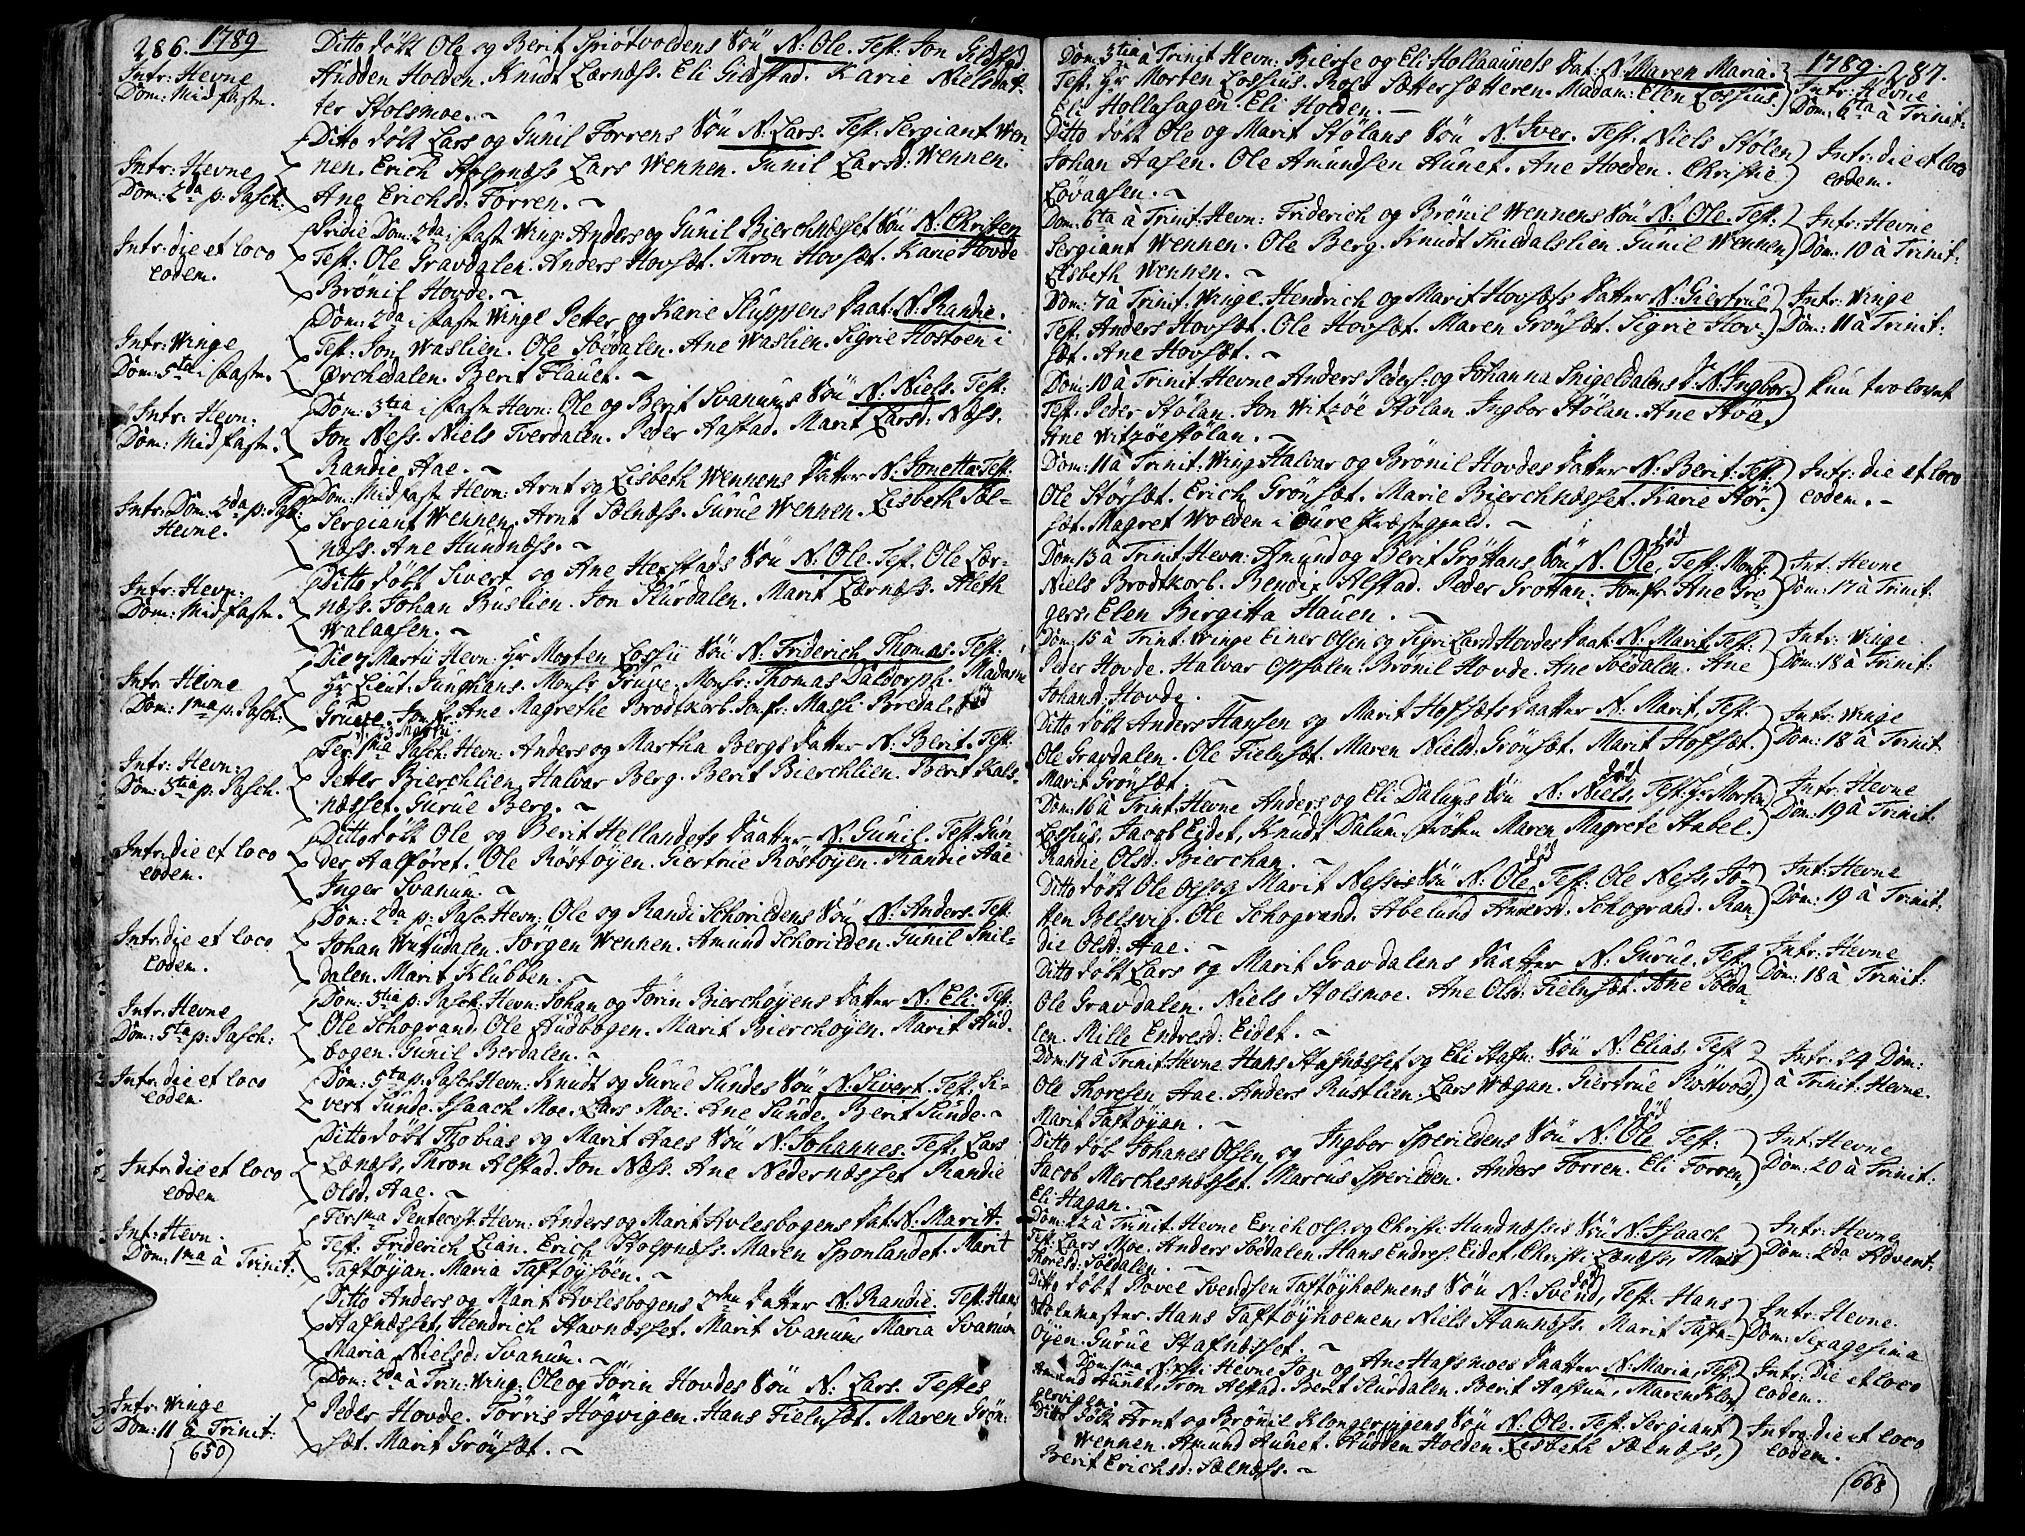 286. 1789
Intr: Hevne
Dom: Midfastn.
Ditto døbt Ole og Berit Spiötvoldens Sön N: Ole. Test: Jon Gildstad
Audden Holden. Knudt Lærnæss. Eli Gildstad. Karie Nielsdat-
ter Stolsmoe. ~
Intr: Hevne
Dom: 2da p: Pasch:
Ditto døbt Lars og Gunil Forrens Sön N: Lars. Test: Sergiant Wen
nen. Erich Stolpnæss Lars Wennen. Gunil Larsd: Wennen.
Ane Erichsd: Forren. ~
Intr: die et loco
eodem.
Pridie Dom: 2da i faste Wing: Anders og Gunil Bierchnæsset Sön N: Christen
Test: Ole Gravdalen. Anders Hovsæt. Thron Hovsæt. Karie Hovde
Brönil Hovde. ~
Intr: Winge
Dom: 5ta i fastn.
Dom: 2da i fastn Winge Petter og Karie Skyppens Daat: N: Randie.
Test: Jon Waslien. Ole Soedalen. Ane Waslien. Sigrie Hostoen i
Orchedalen. Berit Flauet. ~
Intr: Hevn:
Dom: Midfastn.
Dom: 3tia i fastn Hevn: Ole og Berit Svanums Sön N: Niels. Test:
Jon Ness. Niels Tverdalen. Peder Aastad. Marit Larsd: Næss.
Randie Aae. ~
Intr: Dom: 2da p: Pas:
Hevne.
Dom: Midfastn Hevn: Arnt og Lisbeth Wennens Datter N: Jonetta. Test:
Sergiant Wennen. Arnt Sælnæss. Gurue Wennen. Lisbeth Sæl-
næss. Ane Hundnæss. ~
Intr: Hevn:
Dom: Midfastn.
Ditto døbt Sivert og Ane Hexstads Sön N: Ole. Test. Ole Lær-
næss. Johan Buslien. Jon Slurdalen. Marit Lærnæss. Aleth
Walaasen. ~
Intr: Hevne
Dom: 1ma p: Pasch:
Die 7 Martii Hevn: Hr Morten Lossii Sön N: Friderich Thomas. Test:
Hr Lieut: Junghans. Monsr Gruve, Monsr: Thomas Daldorph. Madame
Gruve. Jomfr: Ane Magrethe Brodtkorb. Jomfr: Massi Bredal.
Intr: Hevn:
Dom: 3tia p: Pasch.
Fer: 1ma Pasch. Hevn: Anders og Martha Bergs Datter N: Berit. Test:
Petter Bierchlien. Halvar Berg. Berit Bierchlien. Berit Kals-
næsset. Gurue Berg. ~
Intr: die et loco
eodem.
Ditto døbt Ole og Berit Hellandets Daatter N: Gunil. Test: Gun
der Aalföret. Ole Röstöyen. Giertrue Röstöyen. Randie Aae
Inger Svanum. ~
Intr: die et loco
eodem.
Dom: 2da p: Pasc: Hevn: Ole og Randi Schorildens Sön N: Anders. Test:
Johan Wutudalen. Jörgen Wennen. Amund Schorilden. Gunil Snil-
dalen. Marit Klubben. ~
Intr: Hevne
Dom: 5ta p: Pasch:
Dom: 3tia p: Pasch: Hevn: Johan og Jörin Bierchöyens Datter N. Eli. Test:
Ole Schogrand. Ole Audbogen. Marit Bierchöyen. Marit Aud-
bogen. Gunil Berdalen. ~
Intr: die et loco
eodem.
Dom: 5ta p: Pasch Hevn: Knudt og Gurue Sundes Sön N. Sivert. Test: Si-
vert Sunde. Isaach Moe. Lars Moe. Ane Sunde. Berit Sunde. ~
Intr: die et loco
eodem
Ditto døbt Thobias og Marit Aaes Sön N: Johannes. Test: Lars
Lænæss, Thron Alstad. Jon Næss. Ane Nedernæsset Randie
Olsd, Aae. ~
Int: Hevn.
Dom: 1ma à Trinit:
Fer: 1ma Pentecost: Hevn: Anders og Marit Avlesbogens Dat: N: Marit.
Test: Friderich Lian. Erich Stolpnæss. Maren Sponlandet. Marit
Taftöyan. Maria Taftöysöen. ~
Ditto Anders og Marit Avlesbogens 2den Datter N: Randie. Test: Hans
Stafnæsset, Hendrich Stavnæsset. Marit Svanum, Maria Svanum
Maria Nielsd: Svanum. ~
Intr: Winge
Dom: 11 à Trinit:
Dom: 2da à Trin: Wing: Ole og Jörin Hovdes Sön N: Lars. Testes
Peder Hovde. Törris Hogvigen. Hans Fielnsæt. Maren Grön-
sæt. Marit Grönsæt. ~
(650)
1789. 287.
Dom: 3tia à Trinit Hevn: Bierte og Eli Hollaaunets Dat: N: Maren Maria.
Test: Hr Morten Lossius. Ross Sættersætteren. Madam: Elen Lossius.
Eli Hollahagen. Eli Holden. —
Intr: Hevne
Dom: 6ta à Trinit:
Ditto døbt Ole og Marit Stølans Sön N: Iver. Test. Niels Stølen
Johan Aasen. Ole Amundsen Aunet. Ane Holden. Christie
Lovaasen. ~
Intr: die et loco
eodem.
Dom: 6ta à Trinit: Hevn: Friderich og Brönil Wennens Sön N: Ole. Test:
Sergiant Wennen. Ole Berg. Knudt Snedalslien. Gunil Wennen,
Lisbeth Wennen. ~
Intr: Hevne
Dom: 10 à Trinit:
Dom: 7 à Trinit: Winge. Hendrich og Marit Hovsæts Datter N: Giertrue
Test: Anders Hovsæt. Ole Hovsæt. Maren Grönsæt. Sigrie Hov-
sæt. Ane Hovsæt. ~
Intr: Winge
Dom: 11 à Trinit:
Dom: 10 à Trinit: Hevne Anders Peders: og Johanna Snigeldalens D. N. Ingbor.
Test: Peder Stølan. Jon Witzöe Stølan Ingbor Stølan. Ane Stöe.
Ane Witzöestölan. ~
kun trolovet
Dom: 11 à Trinit: Wing Halvar og Brönil Hovdes Datter N: Berit. Test:
Ole Störsæt. Erich Grönsæt. Marie Bierchnæsset. Karie Stör-
sæt. Magret Wolden i Oure Præstegield. ~
Intr: die et loco
eodem. -
Dom 13 à Trinit. Hevn: Amund og Berit Gröttans Sön N. Ole, Test: Monsr
død
Niels Brodtkorb. Bendix Alstad. Peder Grottan. Jomfr: Ane Gre-
gers: Elen Birgitta Hauen. ~
Int: Hevne
Dom: 17 à Trinit:
Dom: 15 à Trinit: Winge Einer Olsen og Sigri Larsd: Hovdes Daat: N. Marit. Test:
Peder Hovde. Halvar Opsalen. Brönil Hovde. Ane Soedalen. Ane
Johansd: Hovde.
Intr: Winge
Dom: 18 à Trinit:
Ditto døbt Anders Hansen og Marit Hofsæts Daatter N. Marit, Test:
Ole Gravdalen. Ole Fielnsæt. Maren Nielsd: Grönsæt. Marit Hofsæt.
Marit Grönsæt ~
Intr: Winge
Dom: 18 à Trinit.
Dom: 16 à Trinit: Hevne Anders og Eli Dalums Sön N. Niels, Test: Hr Morten
død
Lossius, Jacob Eidet, Knudt Dalum. frøken Maren Magrete Habel.
Randie Olsd: Bierchan. ~
Intr: Hevne
Dom: 19 à Trinit:
Ditto døbt Ole Ols: og Marit Nessis Sön N. Ole, Test: Ole Ness, Jo-
død
sten Belsvig. Ole Schogrand. Abelund Andersd. Schogrand. Ran
die Olsd: Aae. ~
Int: Hevne
Dom: 19 à Trinit:
Ditto døbt Lars og Marit Gravdalens Daatter N: Gurue. Test:
Ole Gravdalen. Niels Stolsmoe. Ane Olsd: Fielnsæt. Ane Solda-
len. Mille Endresd: Eidet. ~
Intr: Hevne
Dom: 18 à Trinit:
Dom: 17 à Trinit: Hevne Hans Stafnæsset og Eli Stafn: Sön N. Elias. Test
Ole Thoresen Aae. Anders Rustlien. Lars Vægan. Giertrue Röstvold,
Marit Taftöyan. ~
Intr: 24 Dom:
à Trinit: Hevne.
Ditto døb Johanes Olsen og Ingbor Sperildens Sön N: Ole Test:
død
Jacob Merchesnæsset. Marcus Sperilden. Anders Forren. Eli Forren,
Eli Hagan. ~
Int: Hevne
Dom: 20 à Trinit:
Dom: 22 à Trinit. Hevne Erich Ols: og Christi Hundnæssis Sön N: Isaach
Test: Lars Moe. Anders Soedalen. Hans Endres: Eidet. Christi Lænæss, Marit
Thoresd: Soedalen. ~
Intr: Hevne
Dom: 2da Advent:
Ditto døbt Povel Svendsen Taftöyholmens Sön N: Svend, Test: Hans
død
Skolemester. Hans Taftöyholmen, Niels Stamnæss. Marit Taft-
öyen. Gurue Stafnæsset. ~
Intr: Hevne.
Dom: Sexagesima
Dom: 1ma Hevne Jon og Ane Hafsmoes Daatter N: Maria, Test:
Amund Aunet, Tron Alstad. Berit Slurdalen. Berit Aastum, Maren Klon-
gervigen. ~
Intr: Die et loco
eodem.
Ditto døbt Arnt og Brönil Klongervigens Sön N: Ole. Test: Sergiant
Wennen. Amund Aunet. Audden Holden. Lisbeth Sælnæss,
Berit Erichsd: Sælnæss. ~
Intr: die et loco
eodem.
(668)